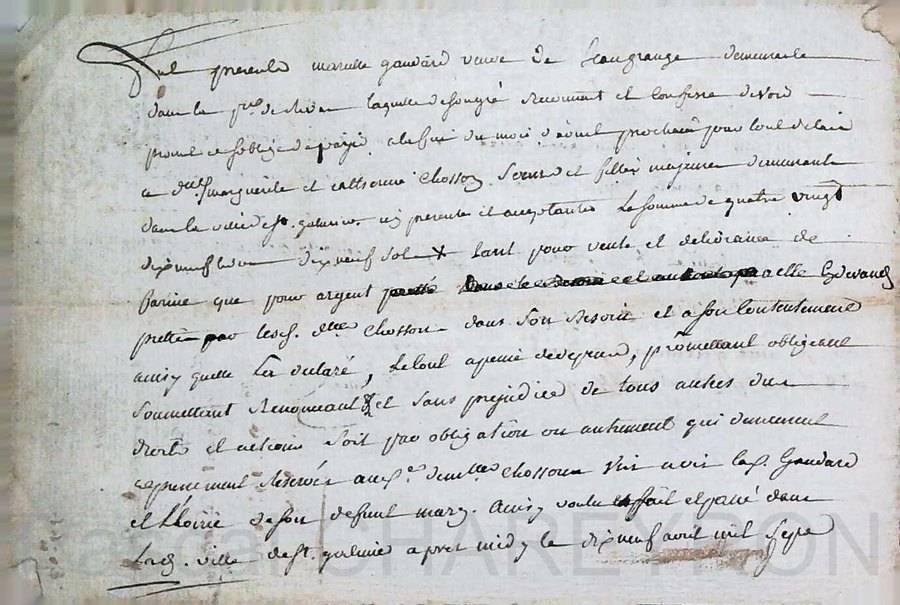 fut presente marie gaudard veuve de Jean grange demeurante
dans la p.sse de laquelle de son gré reconnait et confesse devoir
promet et s'oblige de payer a la fin du mois d'avril prochain pour tout delaix
a d.lles marguerite et catherine Chosson Soeurs et filles majeures demeurante
dans la ville de St. galmier icy presente et acceptantes La somme de quatre vingt
dix neuf livres dix neuf sols tant pour vente et delivrance de
farine que pour argent a elle
prette par lesd. d.lles Chosson dans son besoin et a son Contentement
ainsy quelle l'a declaré, Le tout a peine de depens, promettant obligeant
Soumettant Renonceant & et sans prejudice de tous autres dus
droits et actions soit par obligation ou autrement qui demeurent
expressement reservés auxd. dem.lles Chosson vis a vis lad. Gaudard
et L'hoirie de son defunt mary. Ainsy voulu fait et passé dans
Lad. ville de St. galmier apres midy le dix neuf avril mil sept
CHAREYRON